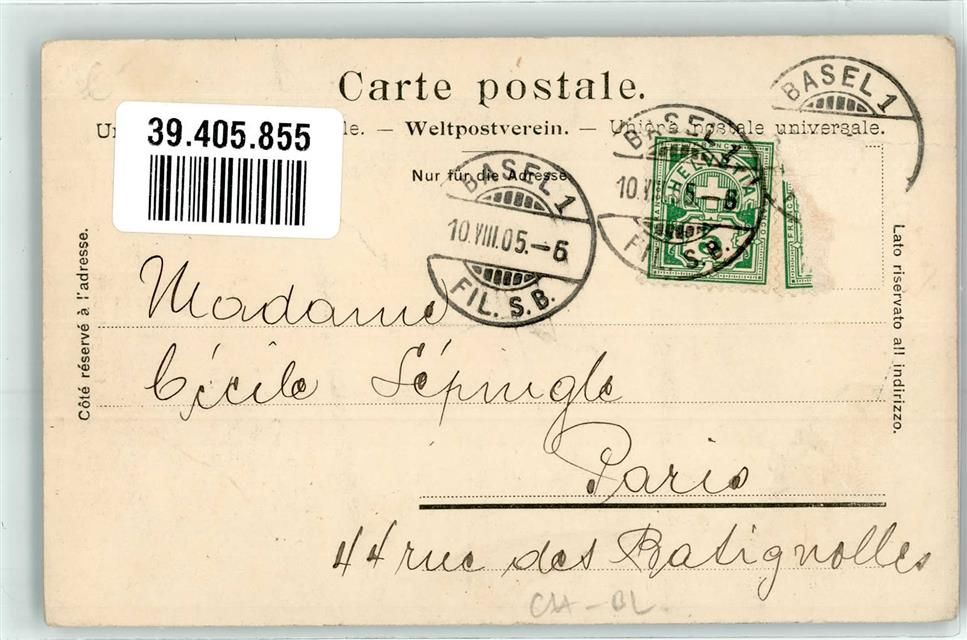 Carte postale.
39.405.855
Un le. — Weltpostverein. — Unione postale universale.
Nur für die Adresse
BASEL 1
10.VIII.05.–6
FIL. S.B.
BASEL 1
10.VIII.05.–6
FIL. S.B.
HELVETIA
BASEL 1
Côté réservé à l'adresse.
Lato riservato all indirizzo.
Madame
Cécile Lépingle
Paris
44 rue des Batignolles
CH - BL